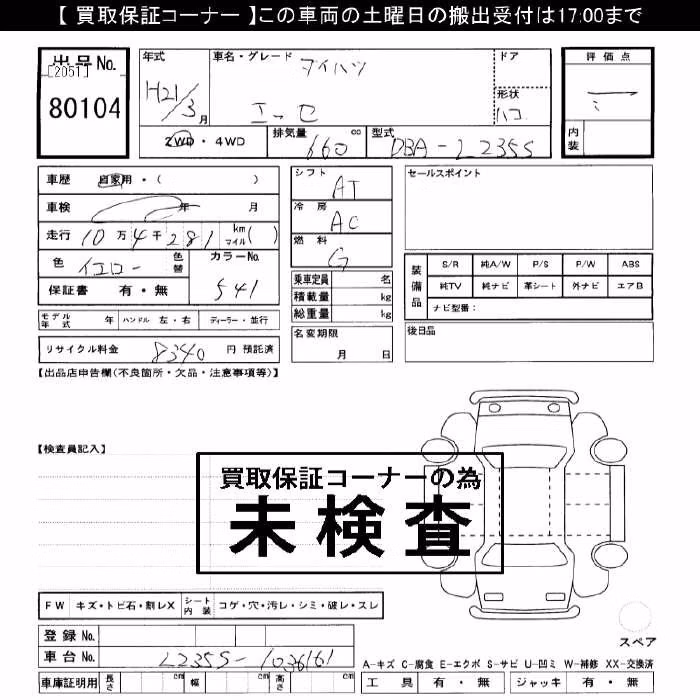 【 買取保証コーナー 】この車両の土曜日の搬出受付は17:00まで
出品No.
[2051]
80104
年式
H21/3月
車名・グレード
ダイハツ
エッセ
ドア
形状
ハコ
評価点
内装
2WD・4WD
排気量
660 cc
型式
DBA-L235S
車歴 自家用・( )
車検 年 月
走行 10万4千281 km マイル( )
色 イエロー 色替
カラーNo.
S41
保証書 有・無
モデル年式 年 ハンドル 左・右 ディーラー・並行
リサイクル料金 8340 円 預託済
シフト AT
冷房 AC
燃料 G
乗車定員 名
積載量 kg
総重量 kg
名変期限
月 日
セールスポイント
装備品
S/R 純A/W P/S P/W ABS
純TV 純ナビ 革シート 外ナビ エアB
ナビ型番:
後日品
【出品店申告欄(不良箇所・欠品・注意事項等)】
【検査員記入】
買取保証コーナーの為
未検査
FW キズ・トビ石・割レX シート内装 コゲ・穴・汚レ・シミ・破レ・スレ
登録No.
車台No. L235S-1036161
車庫証明用 長さ cm 幅 cm 高さ cm
スペア
A-キズ C-腐食 E-エクボ S-サビ U-凹ミ W-補修 XX-交換済
工具 有・無 ジャッキ 有・無